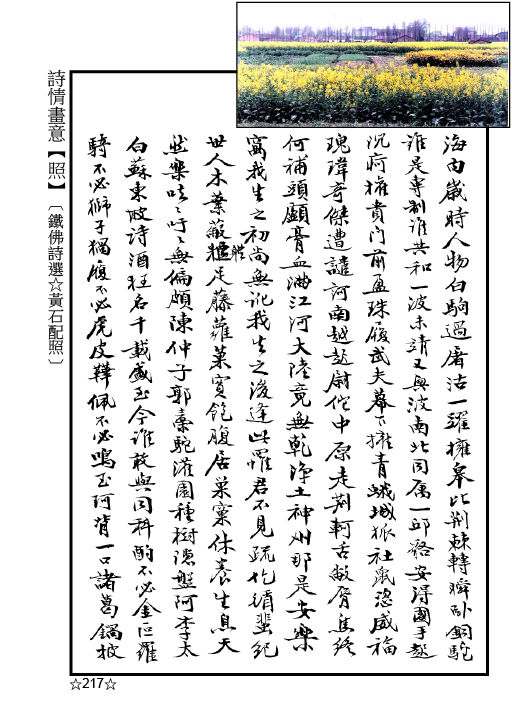 詩情畫意【照】〔鐵佛詩選☆黃石配照〕
海內歲時人物白駒過屠沽一躍擁皋比荊棘轉瞬臥銅駝
誰是專制誰共和一波未靖又興波南北同屬一邱貉安得國手起
沉疴權貴門前盈珠履武夫幕下擁青蛾城狐社鼠恣威福
瑰瑋奇傑遭譴訶南越尉佗中原走荊軻舌敝脣焦終
何補頭顱膏血滿江河大陸竟無乾淨土神州那是安樂
窩我生之初尚無訛我生之後逢此罹君不見疏仡循蜚紀
世人木葉蔽軀足藤蘿菓實飽腹居巢窠休養生息天
然樂吁吁無偏頗陳仲子郭橐駝灌園種樹隱盤阿李太
白蘇東坡詩酒狂名千載盛至今誰敢與同科酌不必金叵羅
騎不必獅子不必虎皮鞾佩不必鳴玉珂背一口諸葛鍋披
☆217☆